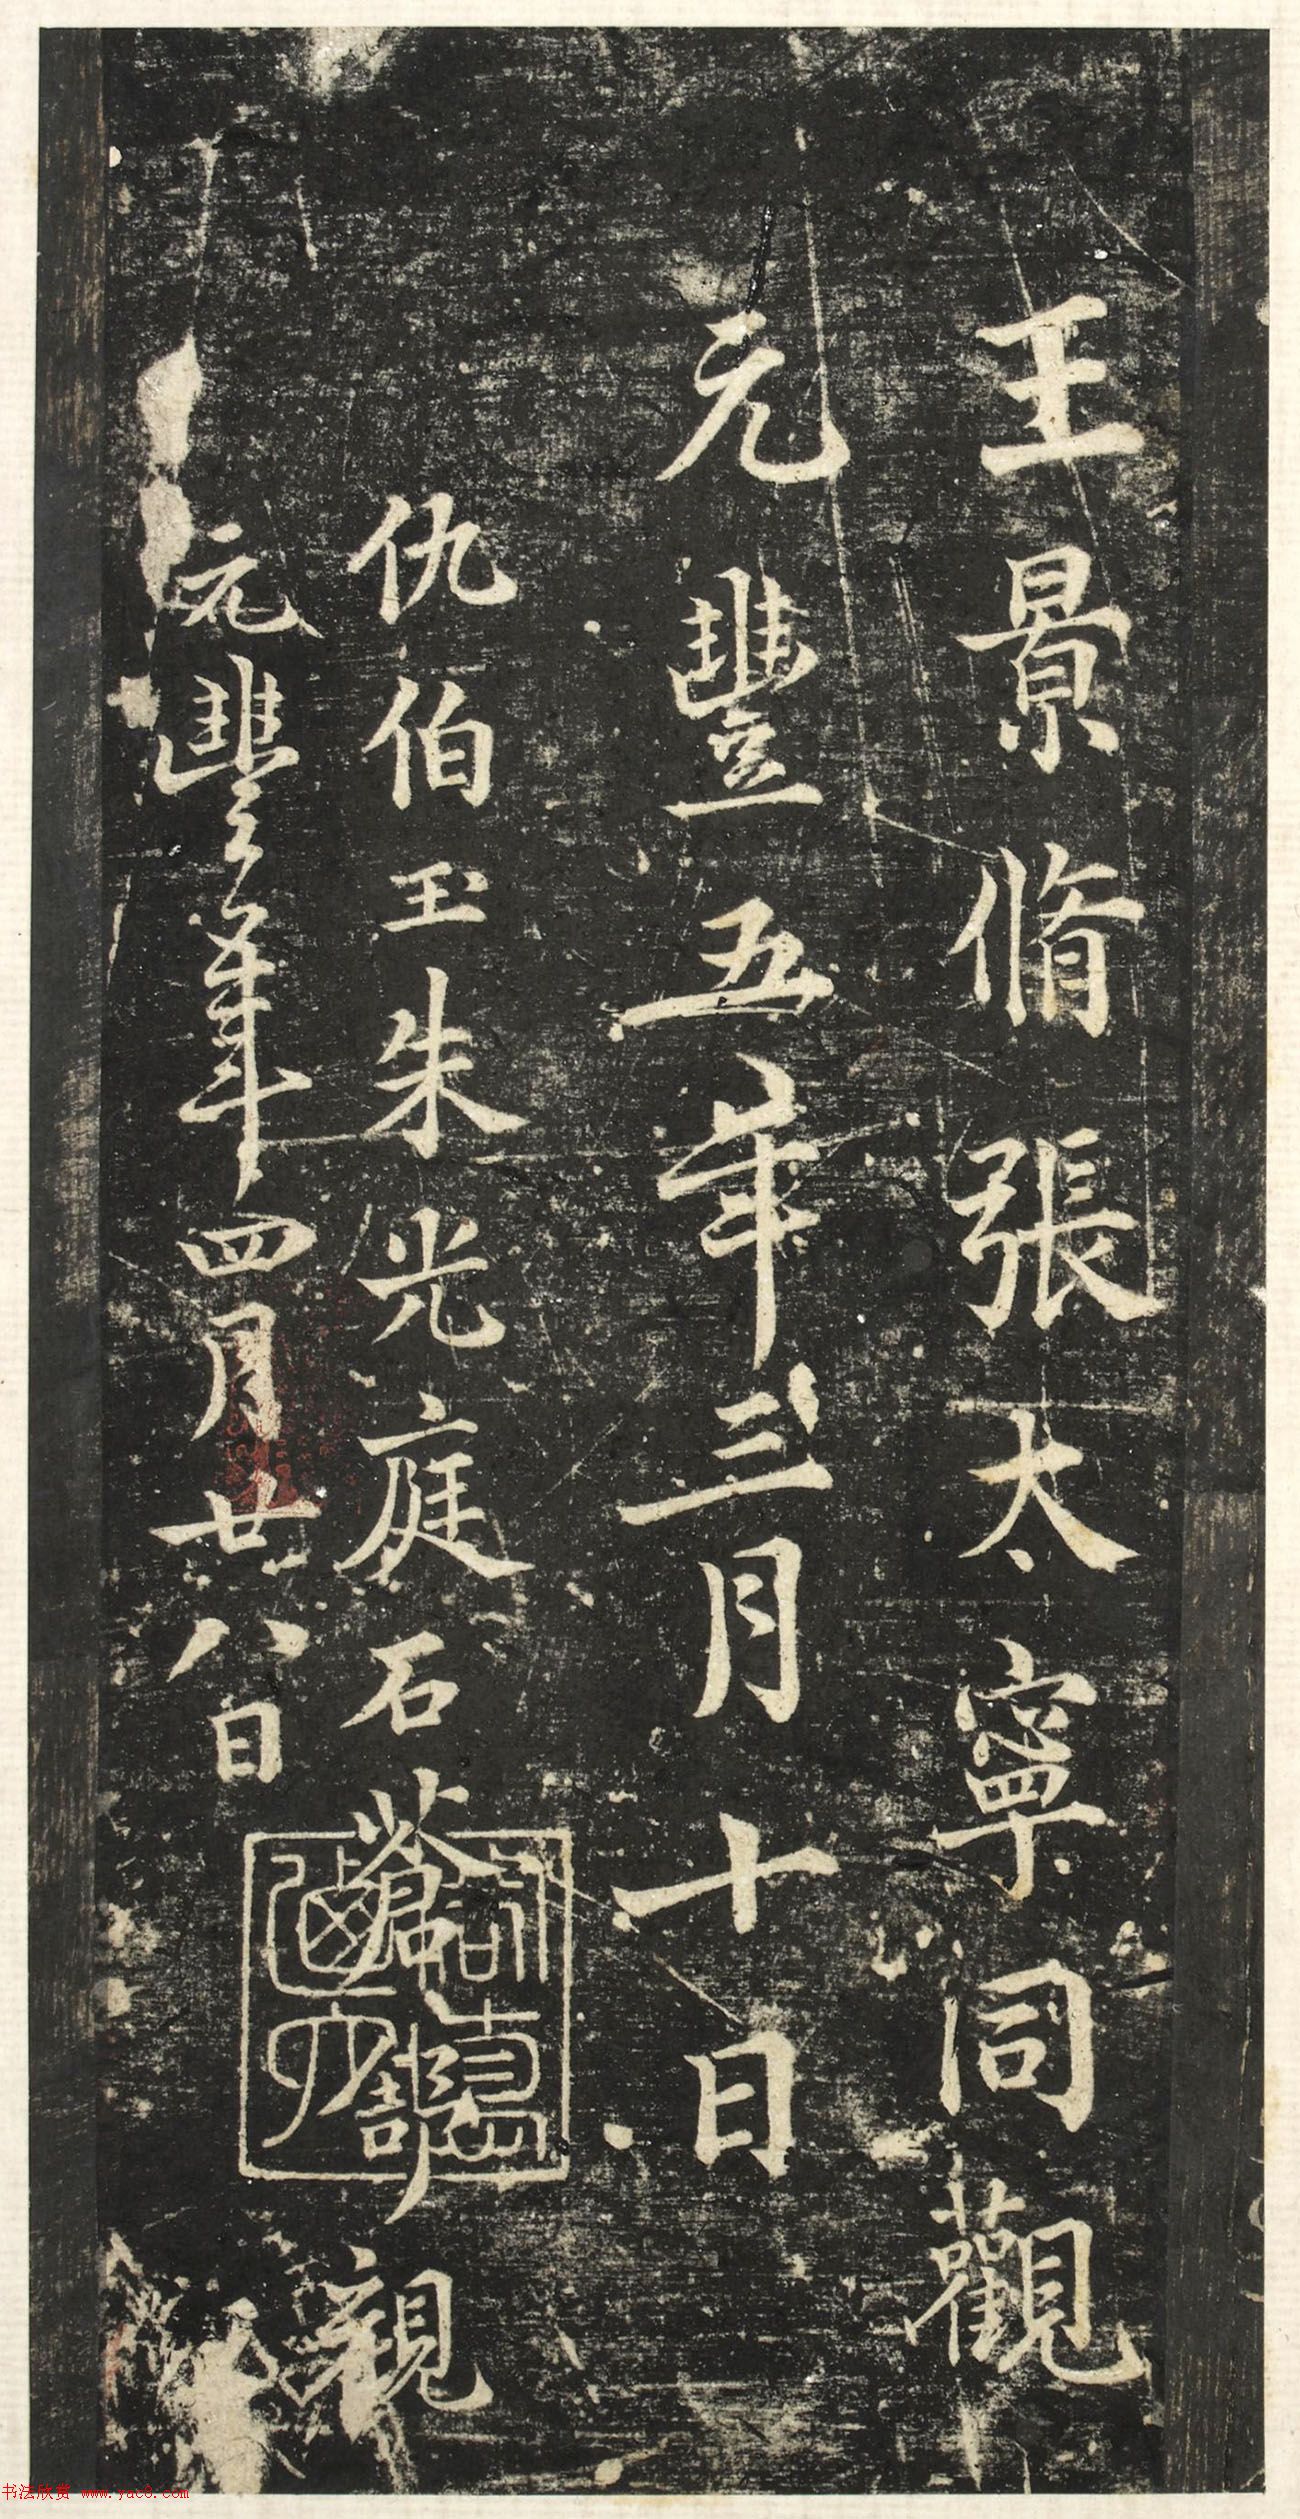 王景脩張太寧同觀
元豐五年三月十日
仇伯玉朱光庭石蒼舒觀
元豐五年四月廿八日
书法欣赏 www.yac8.com